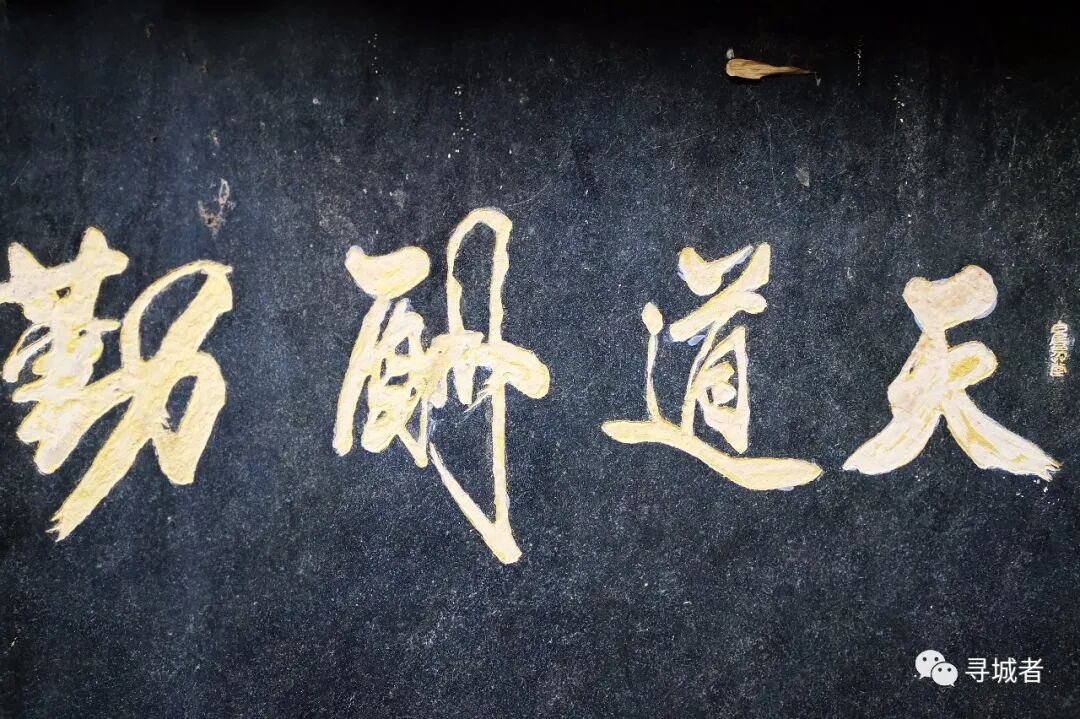 天道酬勤
寻城者